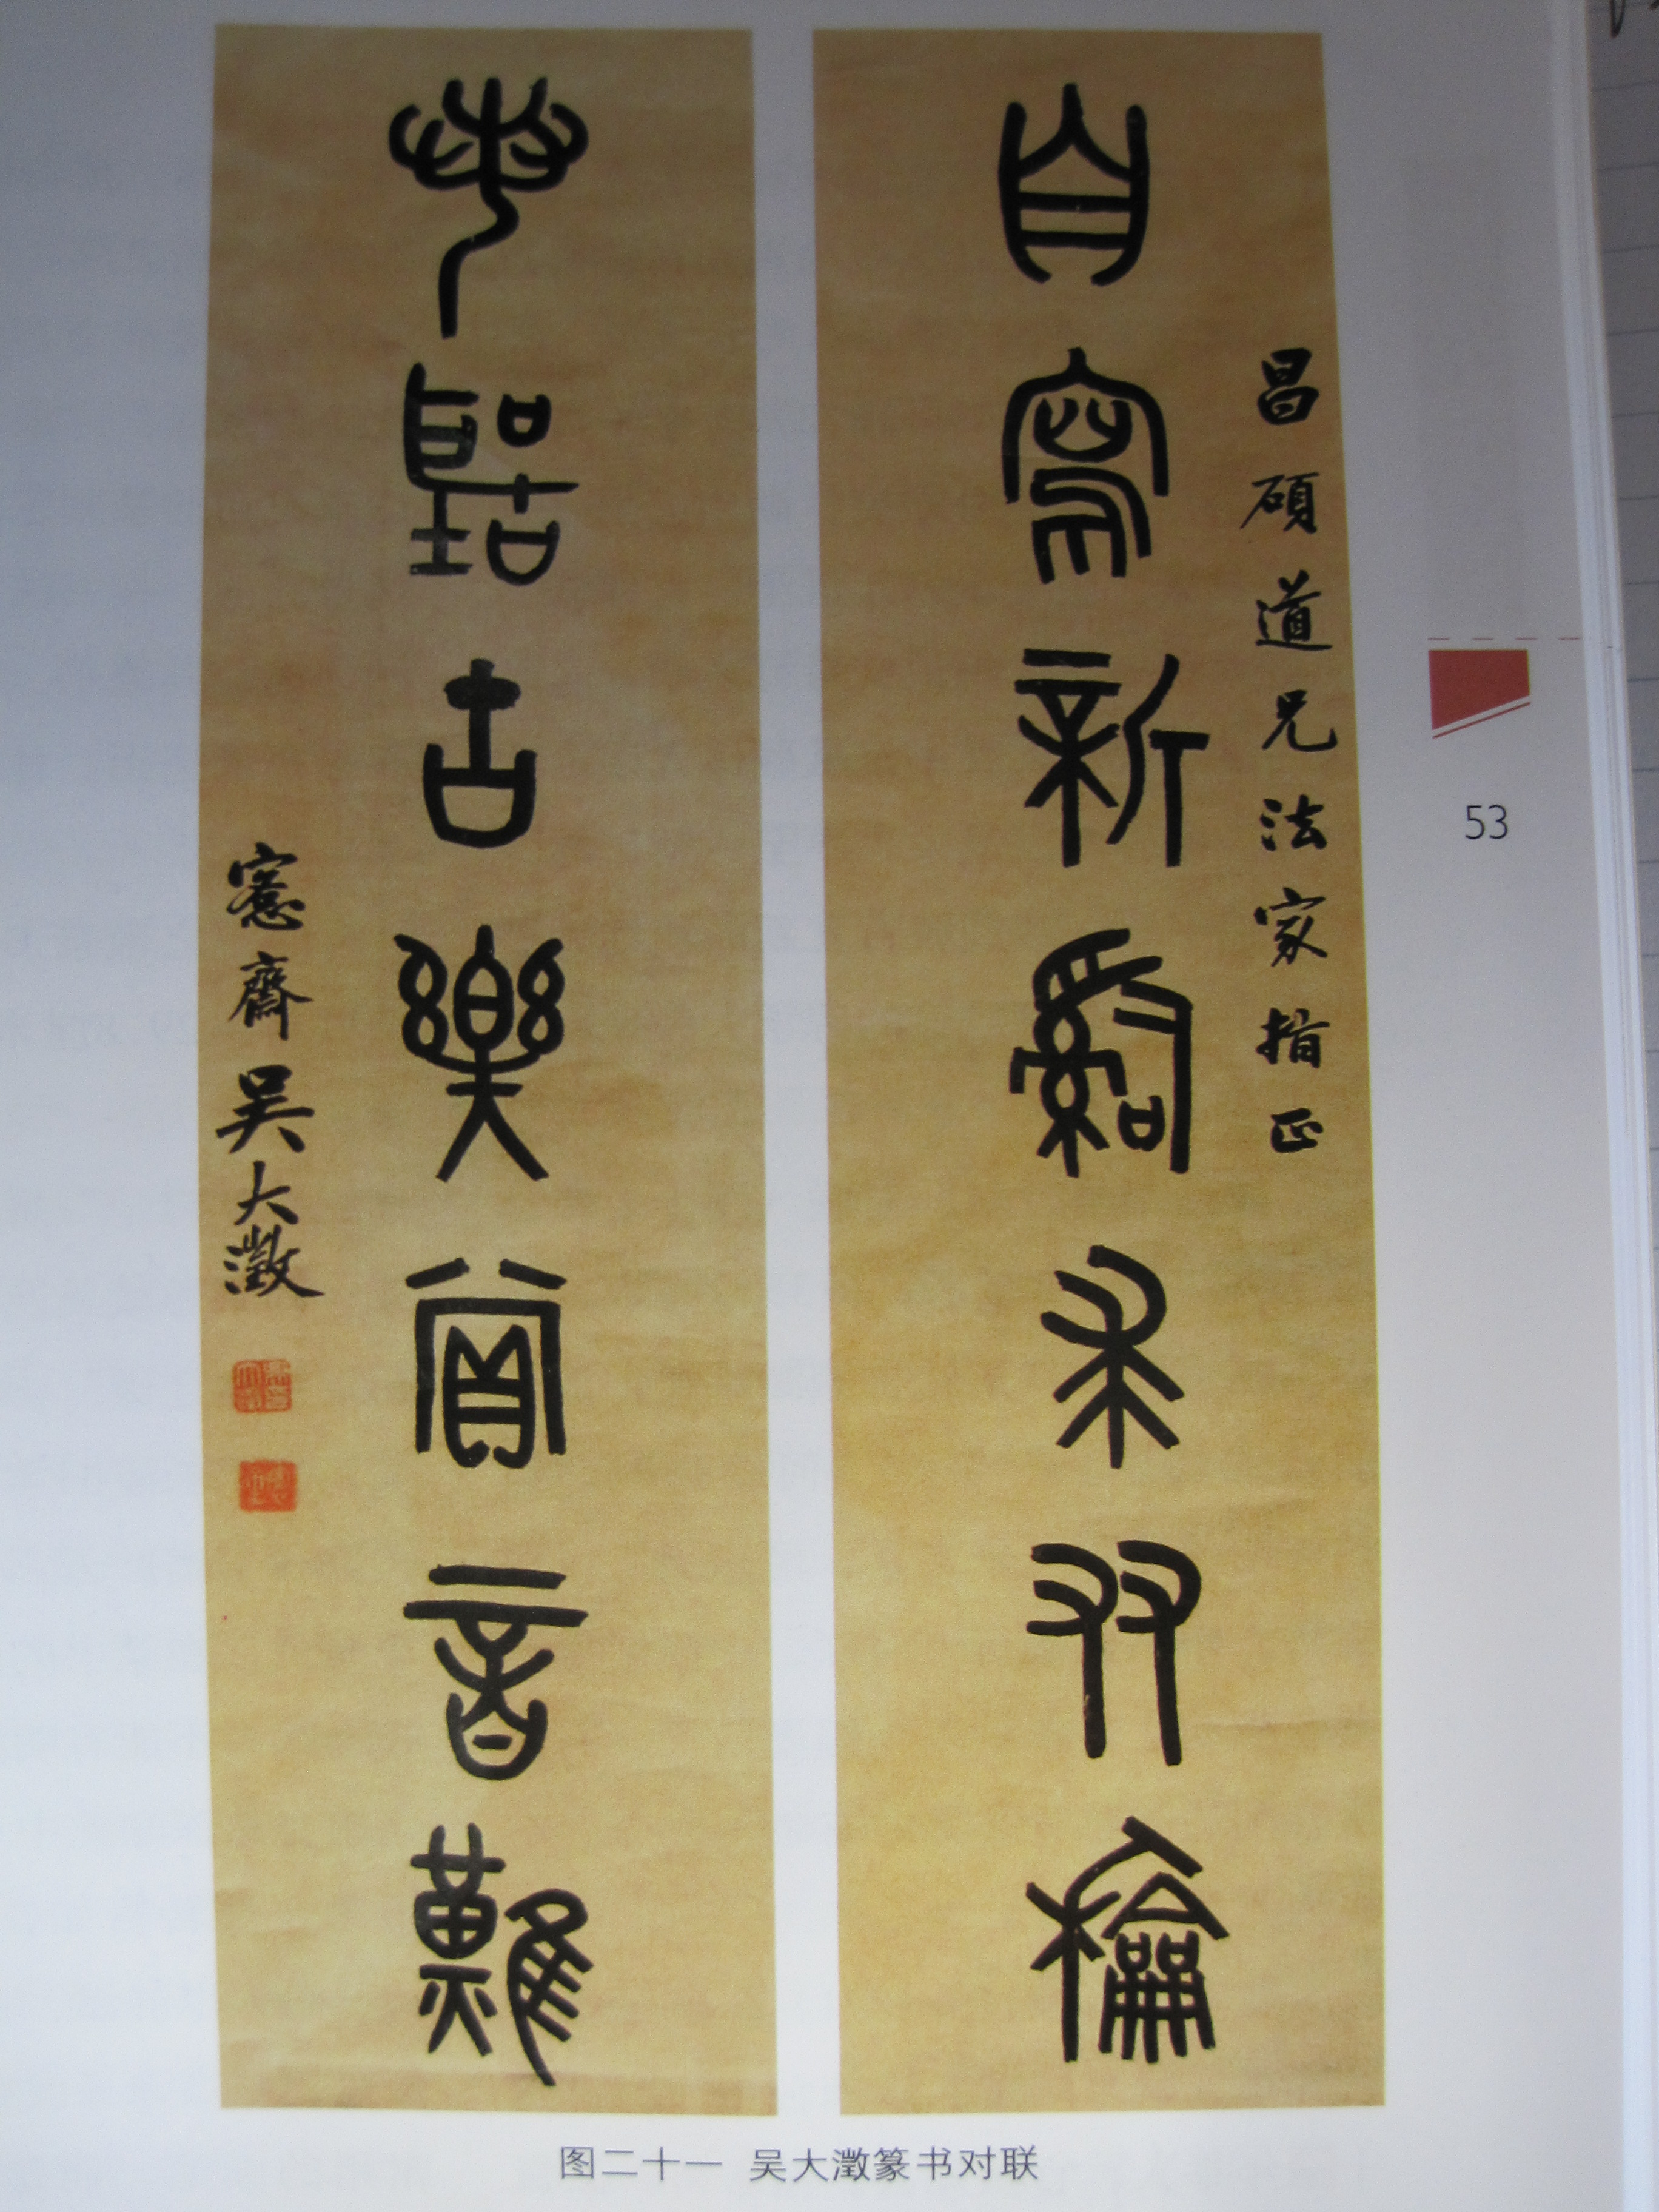 昌碩道兄法家指正
自寫新辭求友龢
聽古樂賞音難
愙齋吳大澂
53
图二十一 吴大澂篆书对联